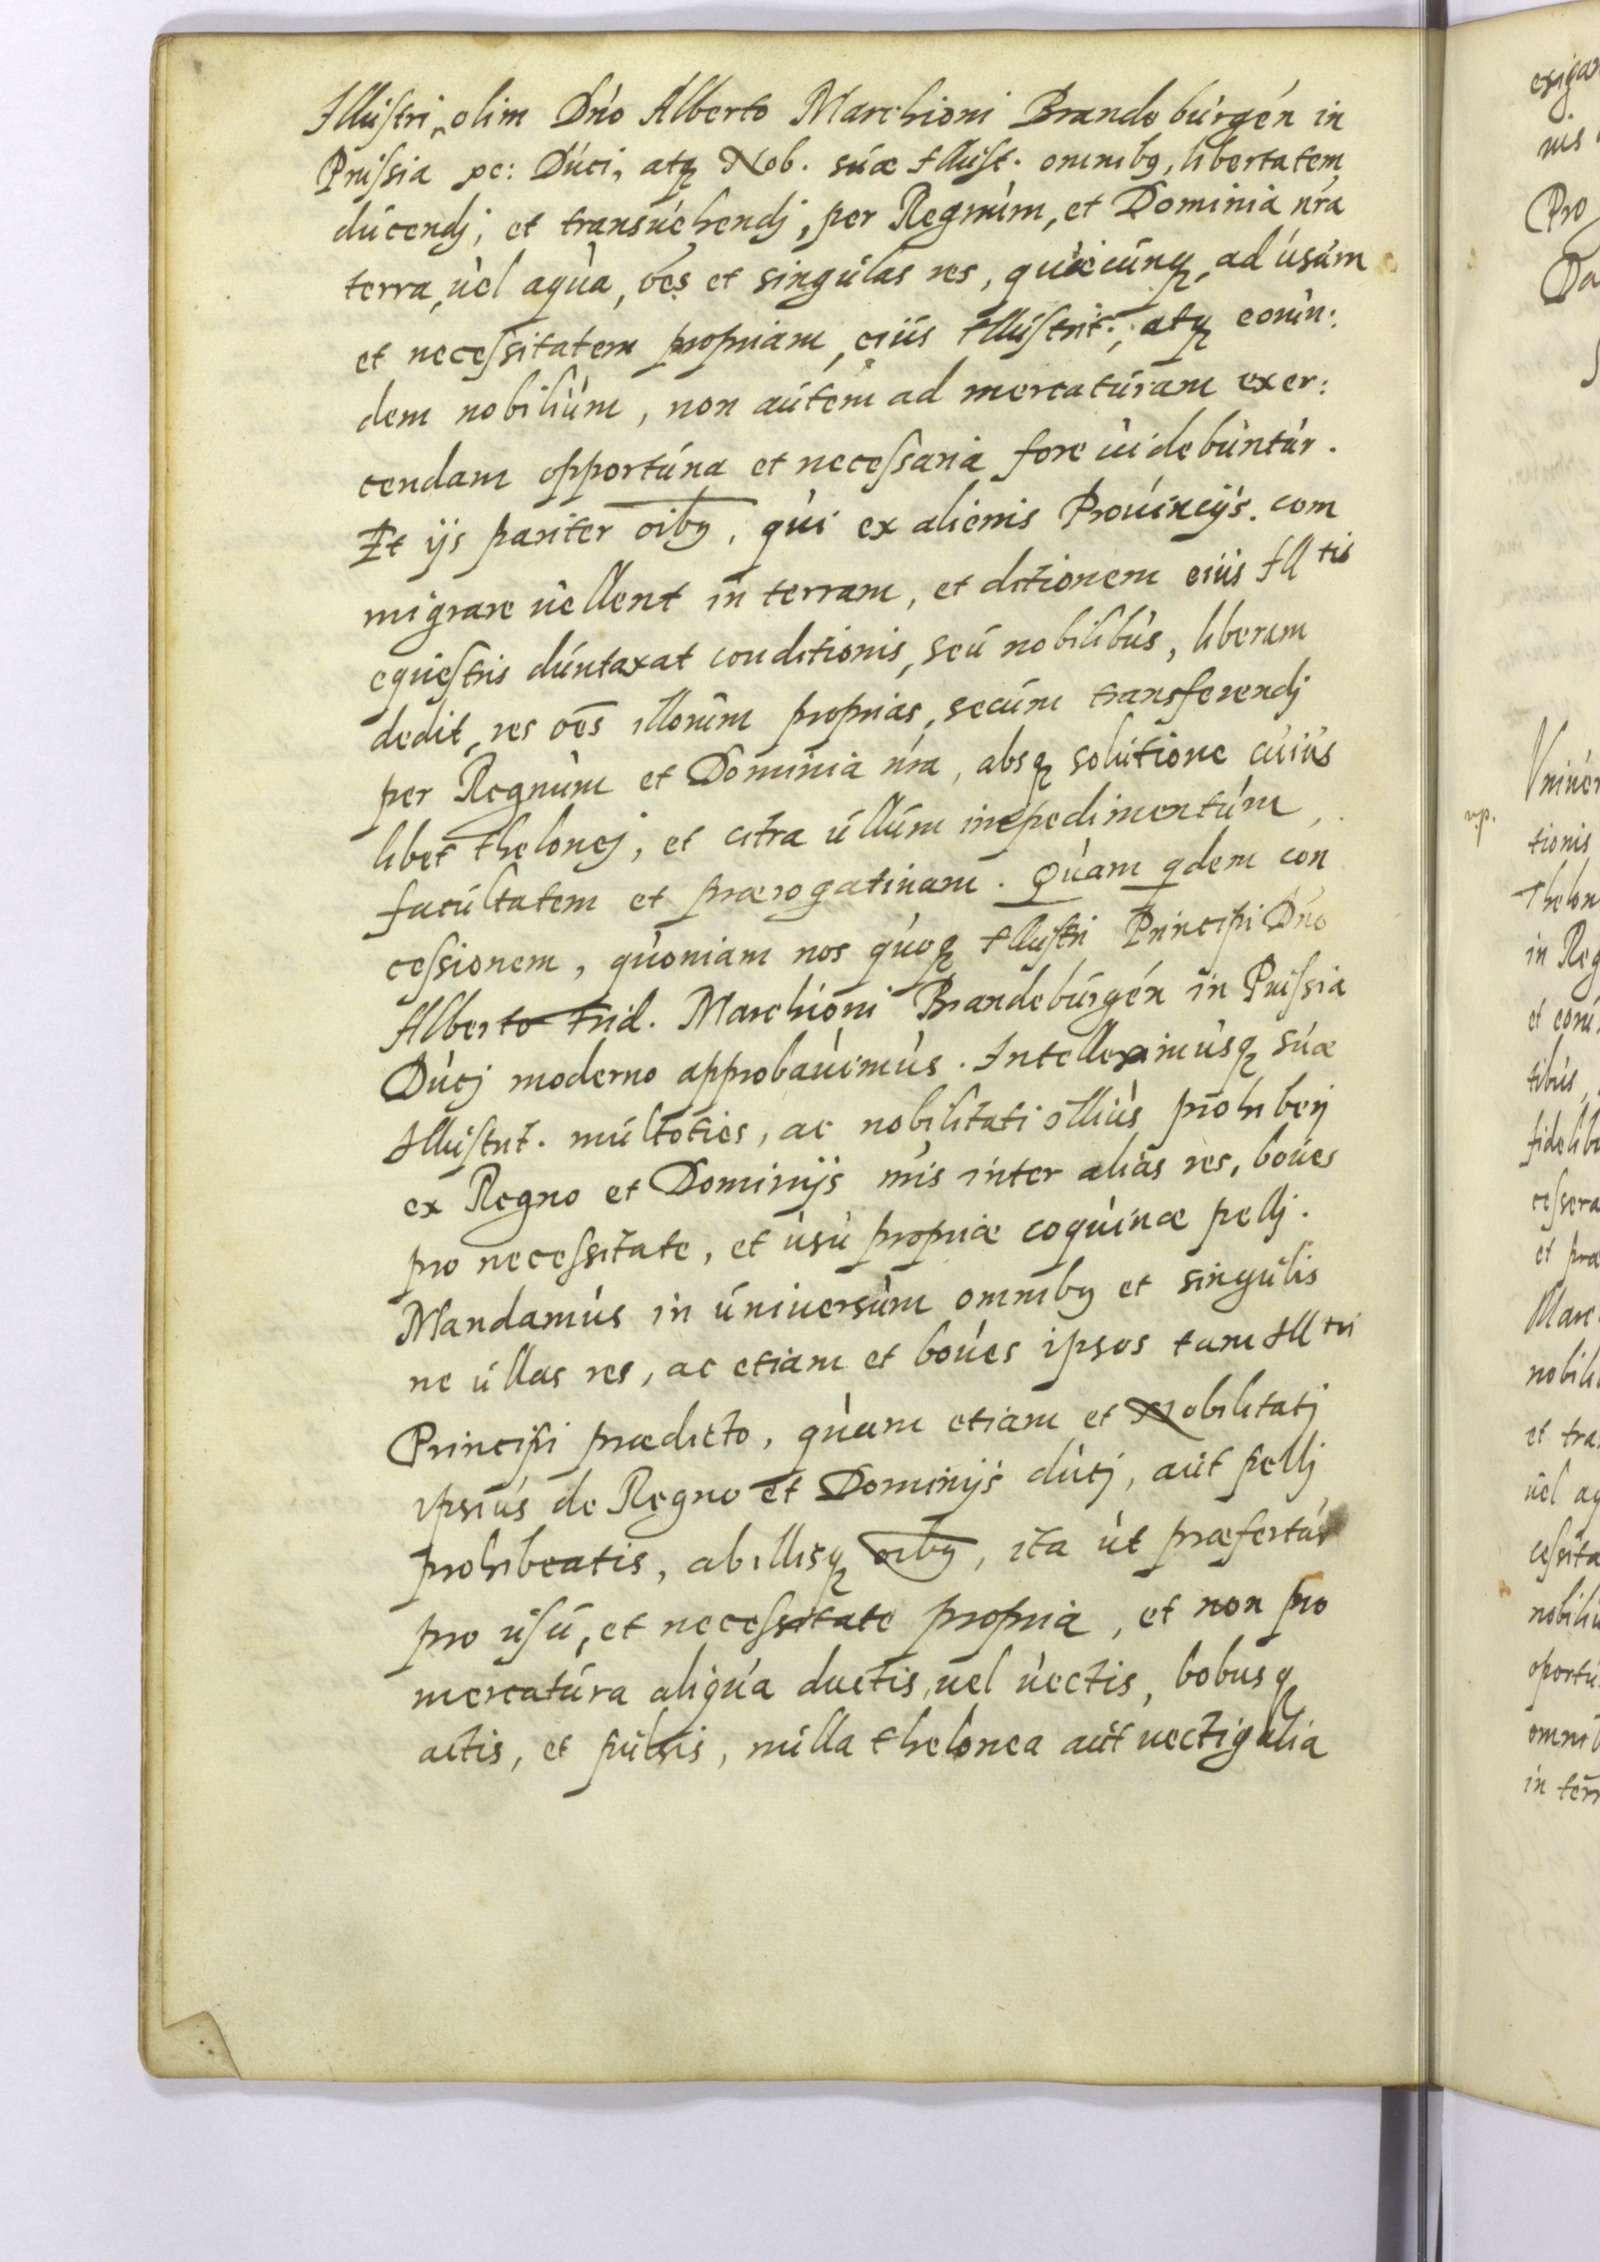 Illustri, olim Dno Alberto Marchioni Brandeburgen in
Prussia xc: Duci, atq Nob. suæ Illust. omnibq, libertatem
ducendj, et transuehendj, per Regnum, et Dominia nra
terra, uel aqua, oes et singulas res, quæcunq, ad usum
et necessitatem propriam, eius Illustrit:, atq eorun:
dem nobilium, non autem ad mercaturam exer:
cendam opportuna et necessaria fore uidebuntur.
Et ijs pariter oibq, qui ex alienis Prouincijs com
migrare uellent in terram, et ditionem eius Ill tis
equestris duntaxat conditionis, seu nobilibus, liberam
dedit, res oes illorum proprias, secum transferendj
per Regnum et Dominia nra, absq solutione cuius
libet thelonej, et citra ullum inpedimentum,
facultatem et prærogatiuam. Quam qdem con
cessionem, quoniam nos quoq Illustri Principi Dno
Alberto Frid. Marchioni Brandeburgen in Prussia
Ducj moderno approbauimus. Intelleximusq suæ
Illustrit. multoties, ac nobilitati illius prohiberj
ex Regno et Dominijs nris inter alias res, boues
pro necessitate, et usu propriæ coquinæ pellj.
Mandamus in uniuersum omnibq et singulis
ne ullas res, ac etiam et boues ipsos tam Ill tri
Principi prædicto, quam etiam et Nobilitatj
ipsius de Regno et Dominijs ducj, aut pellj
prohibeatis, ab illisq oibq, ita ut præfertur
pro usu, et necessitate propria, et non pro
mercatura aliqua ductis, uel uectis, bobusq
actis, et pulsis, nulla thelonea aut uectigalia
nis
Pro
tionis
Thelon
in Reg
tibus
fidelib
cessera
et præ
Marc
nobili
et tra
uel aq
cessita
nobiliu
oportu
omnib
in terr